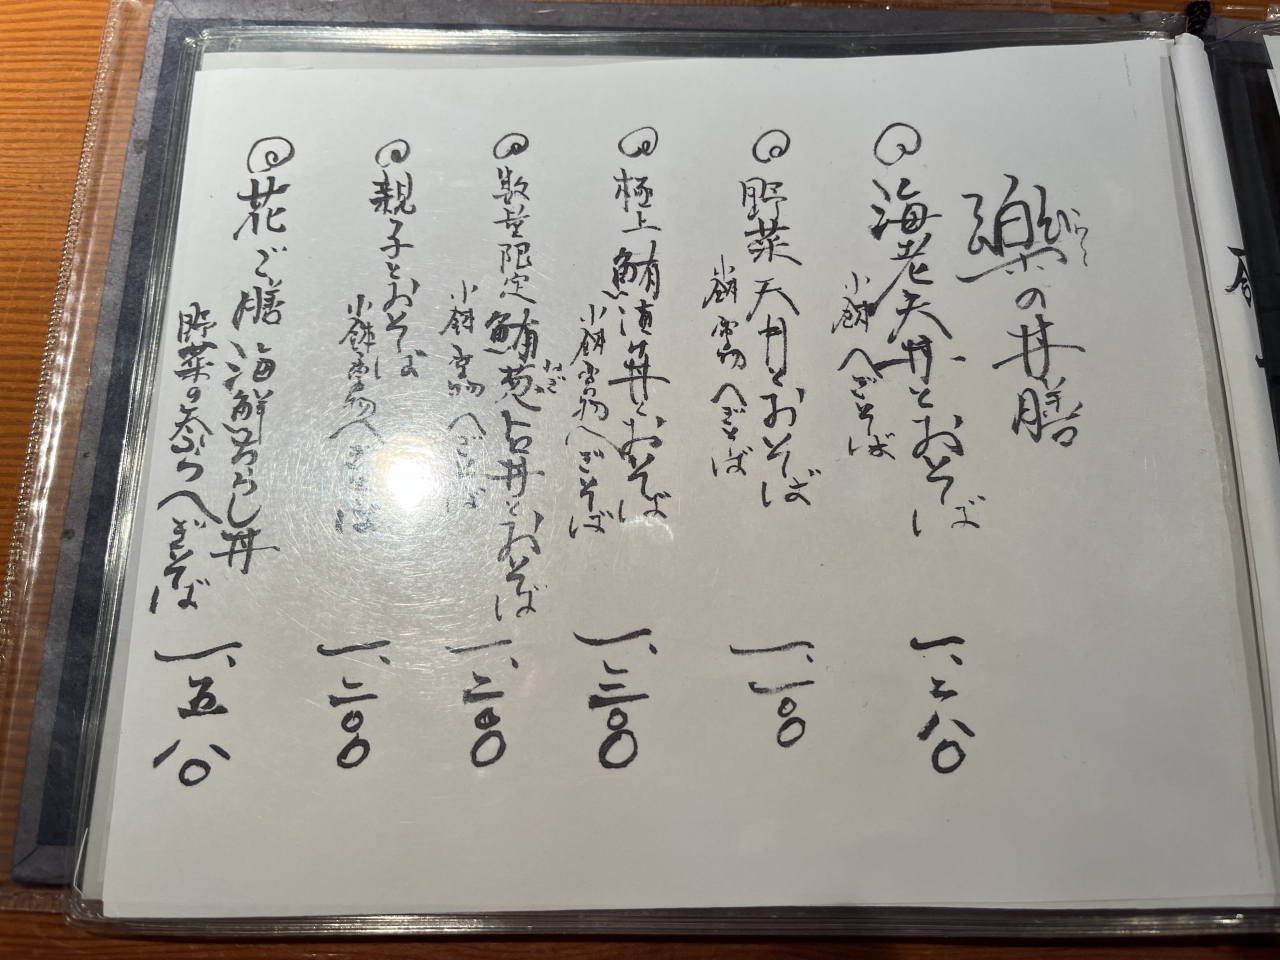 樂の丼膳
海老天丼とおそば
小鉢 へぎそば
一、二八〇
野菜天丼とおそば
小鉢 香物 へぎそば
一、一〇〇
極上鮪漬丼とおそば
小鉢 香物 へぎそば
一、三〇〇
数量限定 鮪葱とろ丼とおそば
ねぎ
小鉢 香物 へぎそば
一、二〇〇
親子とおそば
小鉢 香物 へぎそば
一、二〇〇
花ご膳 海鮮ちらし丼
野菜の天ぷら へぎそば
一、五八〇